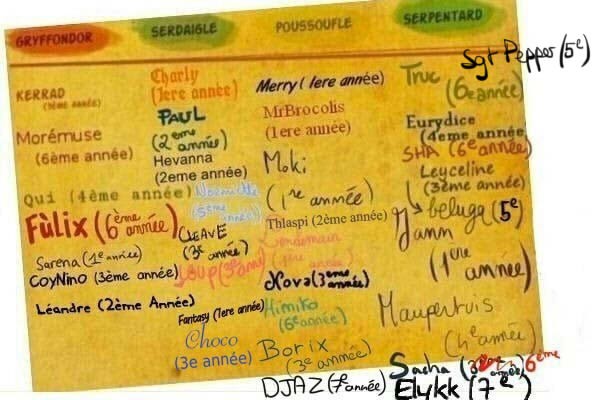 GRYFFONDOR
KERRAD
(3ème année)
Morémuse
(6ème année)
Qui (4ème année)
Fùlix (6ème année)
Sarena (1e année)
CoyNino (3ème année)
Léandre (2ème Année)
SERDAIGLE
Charly
(1ere année)
PAUL
(2eme année)
Hevanna
(2eme année)
(5eme année)
CLEAVE
(3e année)
Fantasy (1ere année)
Choco
(3e année)
POUSSOUFLE
Merry (1ere année)
MrBrocolis
(1ere année)
Moki
(1re année)
Thlaspi (2ème année)
Lendemain
Nova (3eme année)
Himiko
(6e année)
Borix
(3e année)
DJAZ (7e année)
SERPENTARD
Sgt Pepper (5e)
Truc
(6e année)
Eurydice
(4eme année)
SHA (6e année)
Leyceline
(3ème année)
beluga (5e)
Yann
(1ere année)
Maupertuis
(4e année)
Sacha 6eme
Elykk (7e)